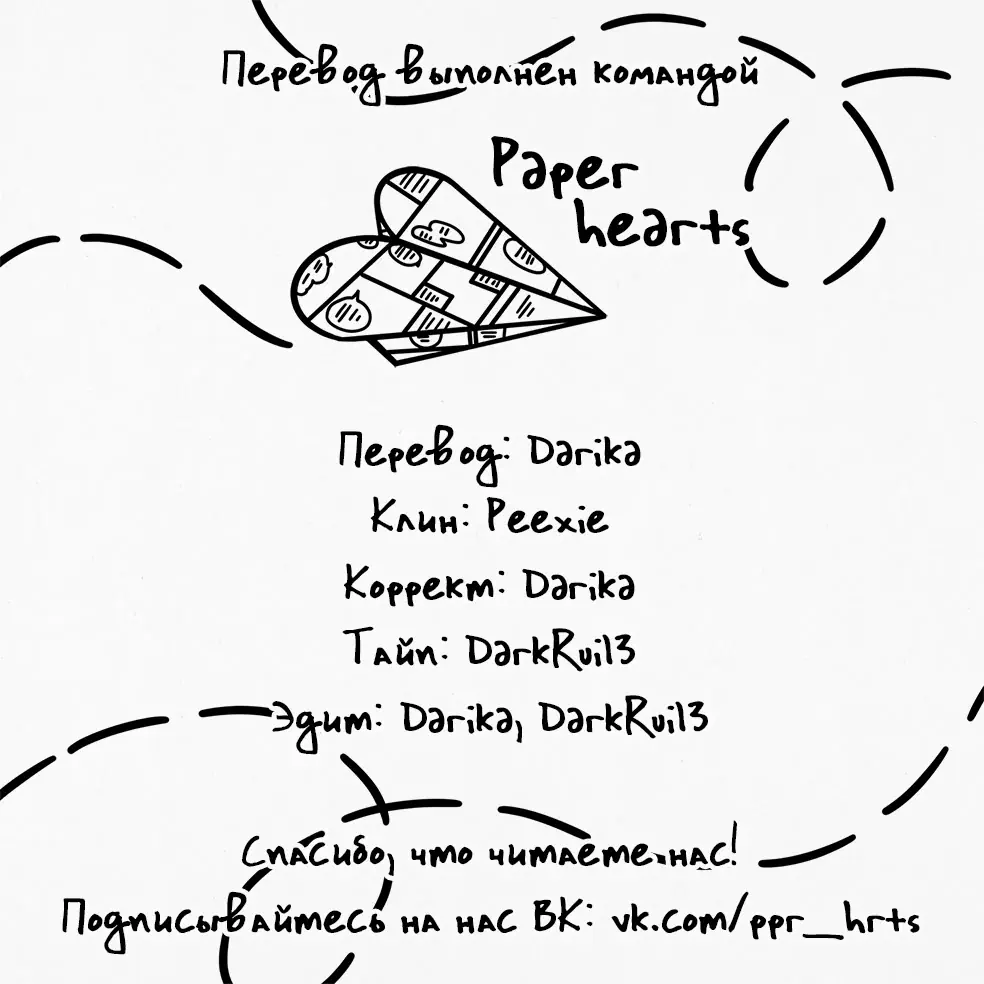 Перевод выполнен командой
Paper
hearts
Перевод: Darika
Клин: Peexie
Коррект: Darika
Тайп: DarkRui13
Эдит: Darika, DarkRui13
Спасибо, что читаете нас!
Подписывайтесь на нас ВК: vk.com/ppr__hrts